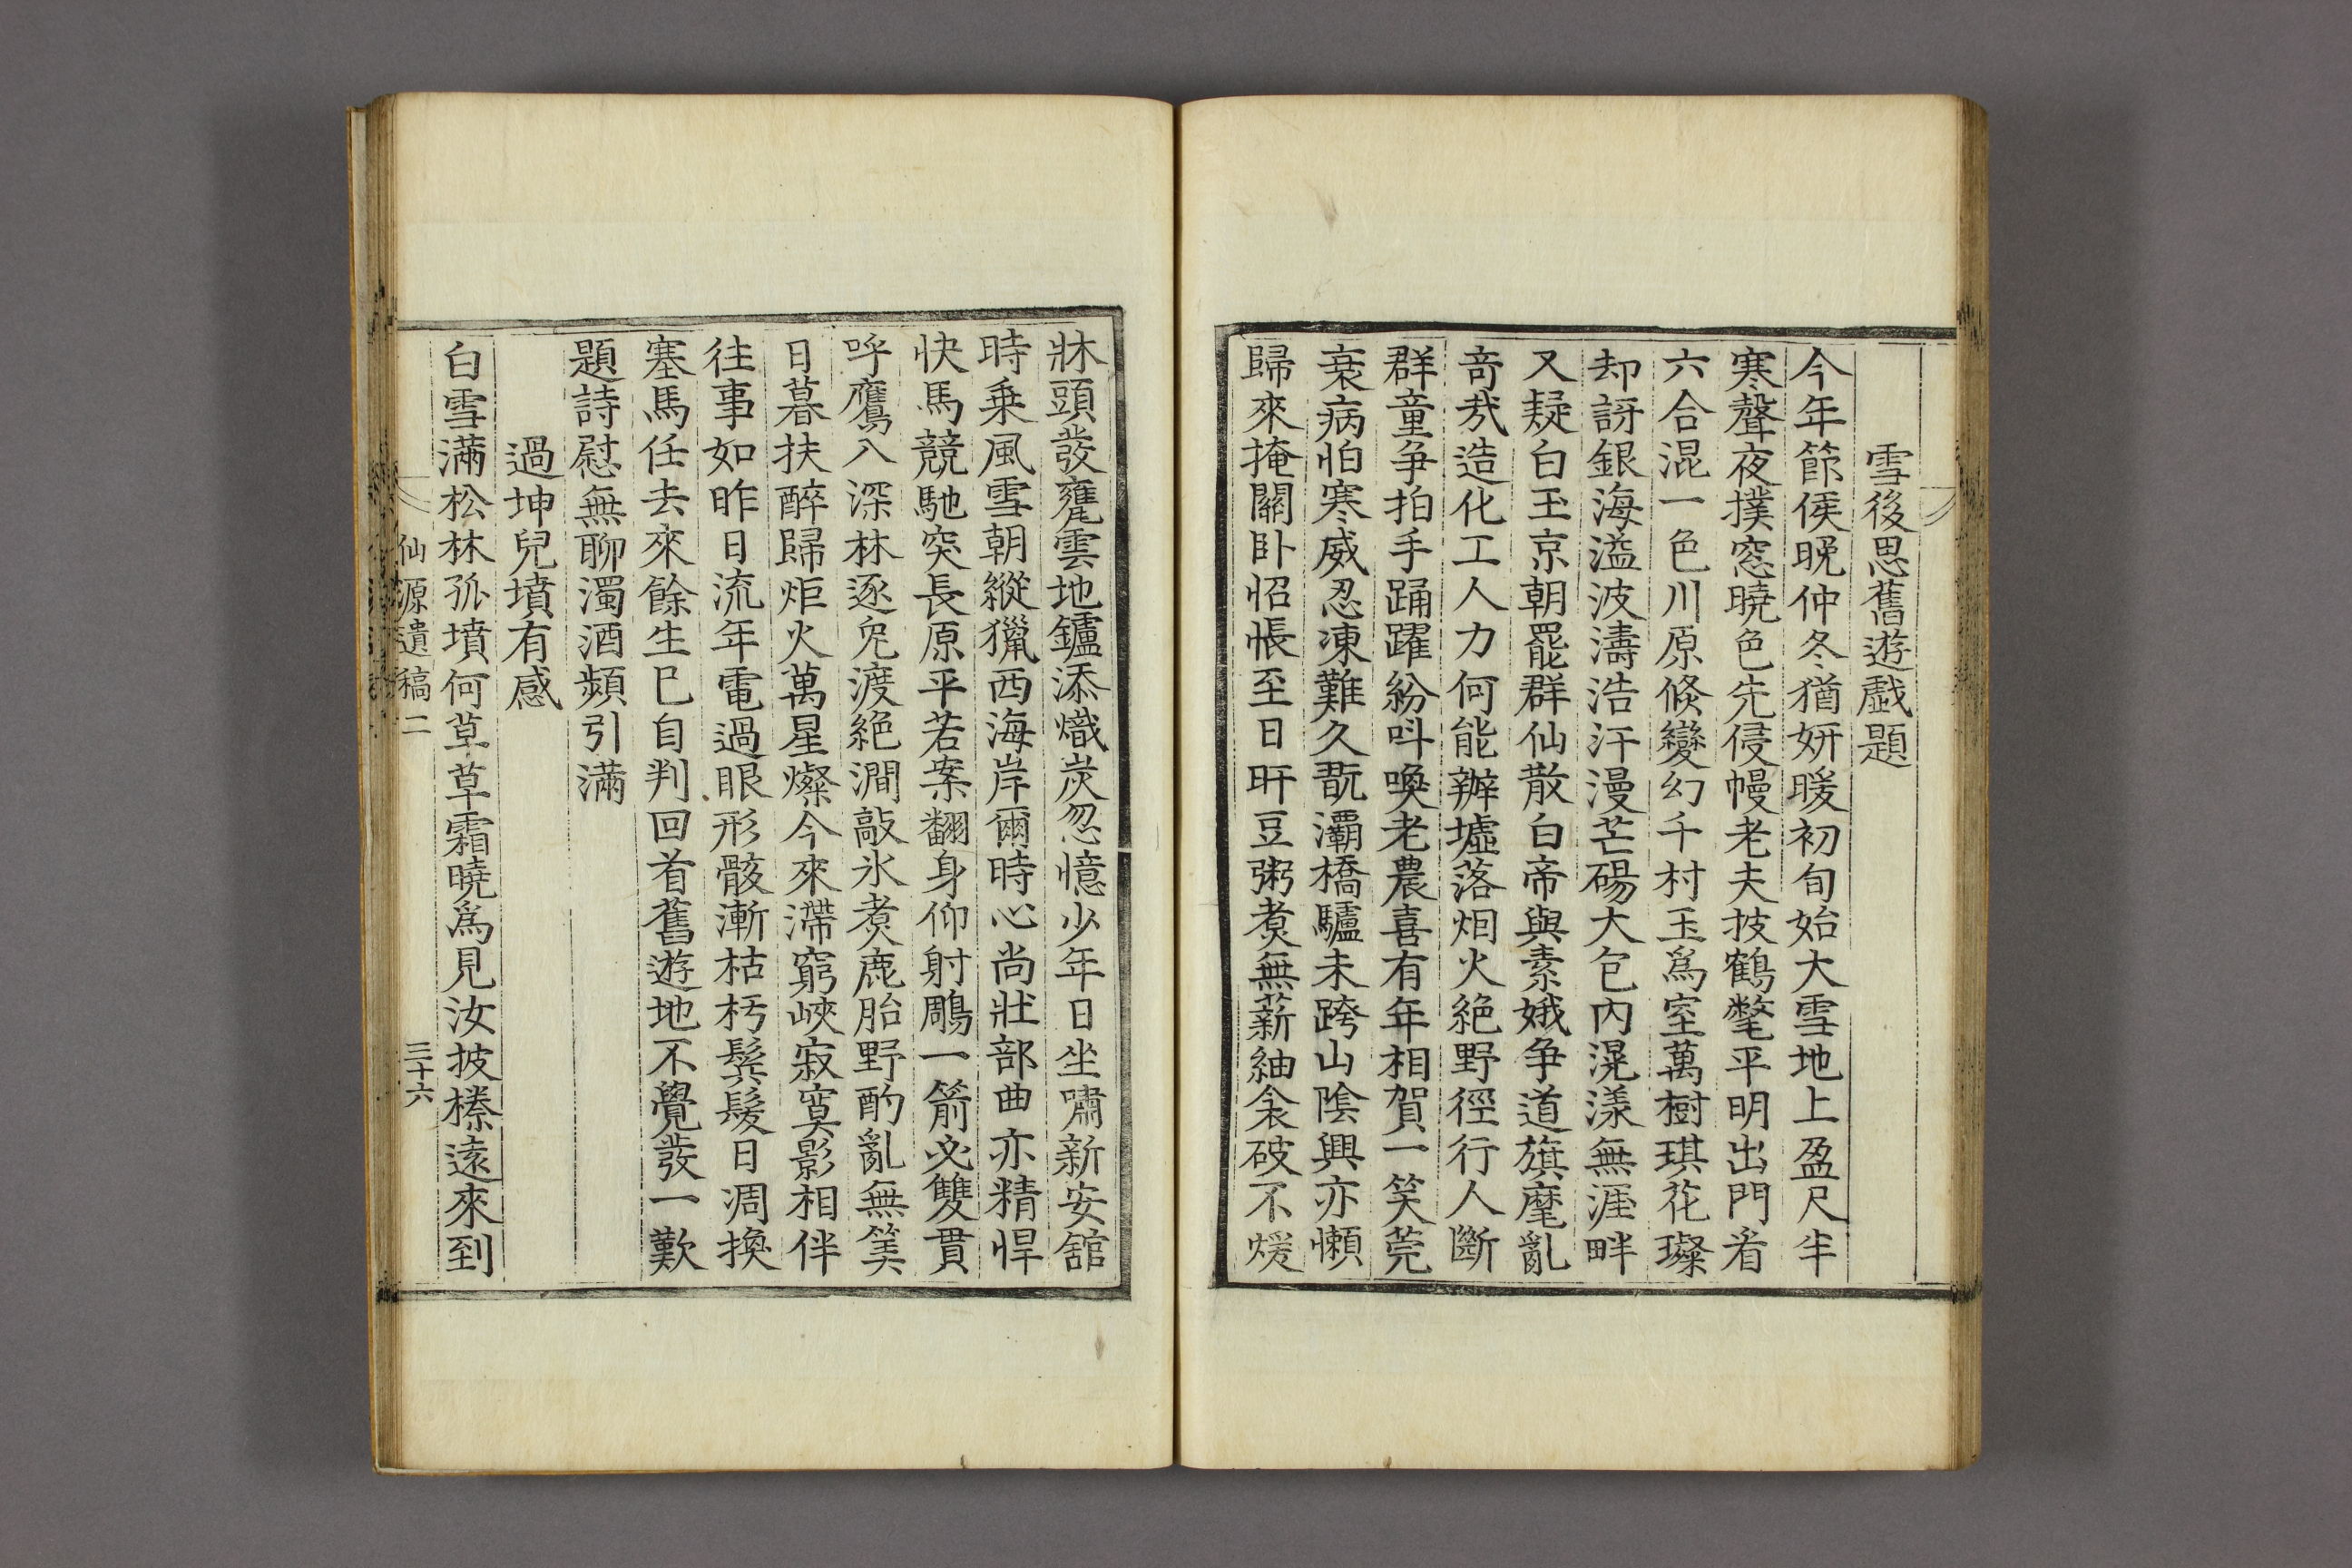 雪後思舊遊戱題
今年節侯晩仲冬猶妍暖初旬始大雪地上盈尺半
寒聲夜撲窓曉色先侵幔老夫披鶴氅平明出門看
六合混一色川原倐變幻千村玉爲室萬樹琪花璨
却訝銀海溢波濤浩汗漫芒碭大包內滉漾無涯畔
又疑白玉京朝罷群仙散白帝與素娥争道旗麾亂
竒㢤造化工人力何能辦墟落烟火絶野徑行人斷
群童争拍手踊躍紛叫喚老農喜有年相賀一笑莞
衰病怕寒威忍凍難久翫灞橋驢未跨山隂興亦懶
歸來掩關卧怊悵至日旰豆粥煑無薪紬衾破不煖
牀頭發甕雲地鑪添熾炭忽憶少年日坐嘯新安舘
時乗風雪朝縱獵西海岸爾時心尚壯部曲亦精悍
快馬競馳突長原平若案翻身仰射鵰一箭必雙貫
呼鷹入深林逐兔渡絶澗敲氷煑鹿胎野酌亂無筭
日暮扶醉歸炬火萬星燦今來滯窮峽寂寞影相伴
往事如昨日流年電過眼形骸漸枯朽鬂髮日凋換
塞馬任去來餘生已自判回首舊遊地不覺發一歎
題詩慰無聊濁酒頻引滿
過坤兒墳有感
白雪滿松林孤墳何草草霜曉爲見汝披榛遠來到
仙源遺稿二
三十六